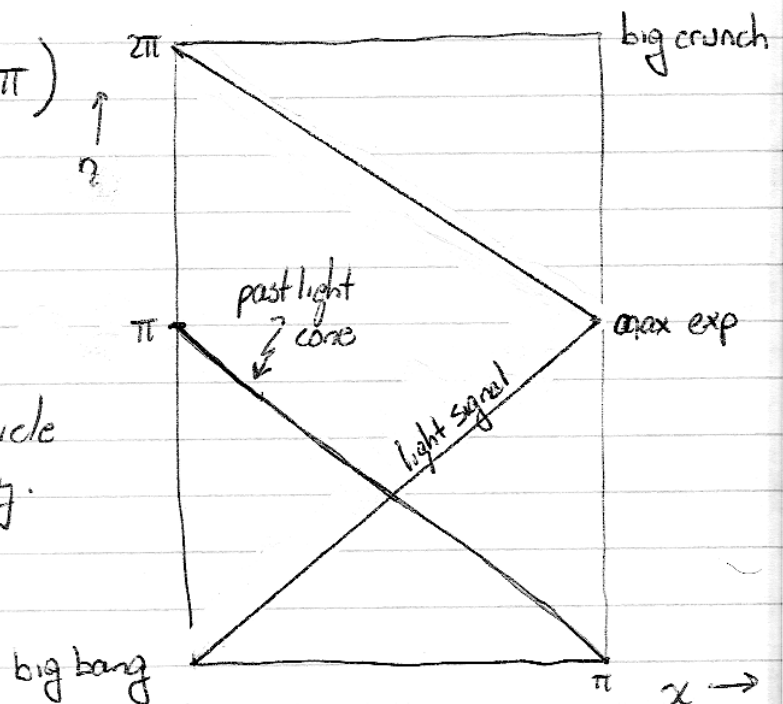 2π
big crunch
π)
↑
η
past light
cone
π
max exp
light signal
big bang
π
χ →